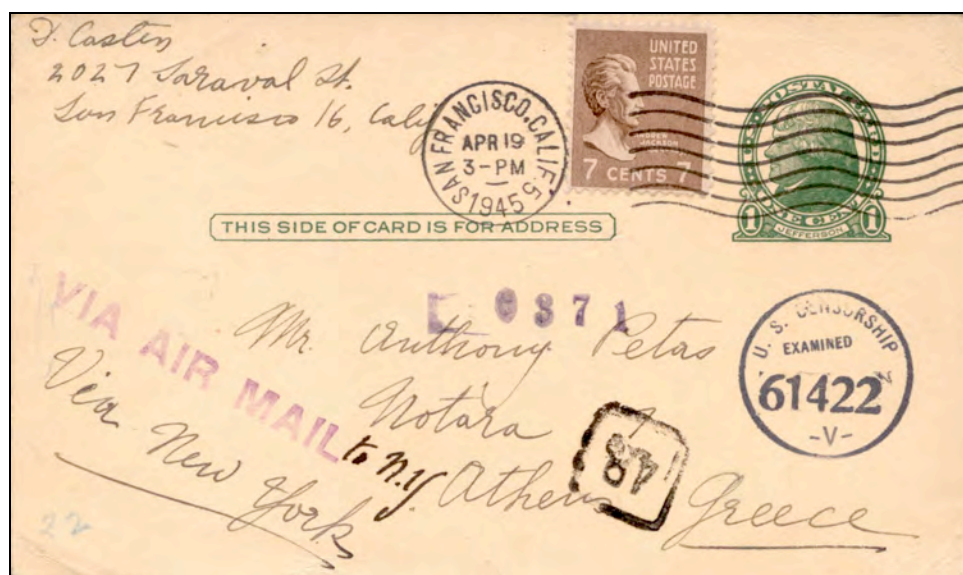 D. Casten
2027 Taraval St.
San Francisco 16, Calif
SAN FRANCISCO, CALIF. 5
APR 19
3-PM
1945
UNITED
STATES
POSTAGE
7 CENTS 7
1 ONE CENT 1
JEFFERSON
THIS SIDE OF CARD IS FOR ADDRESS
0371
VIA AIR MAIL
to N.Y.
Mr. Anthony Petas
Notara
Athens Greece
Via
New York
U. S. CENSORSHIP
EXAMINED
61422
-V-
48
22